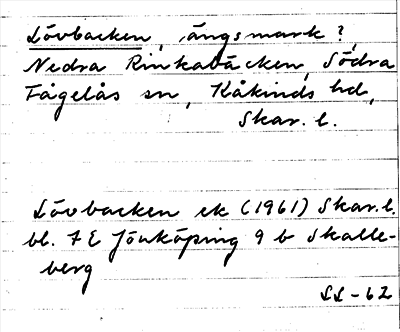 Lövbacken, ängsmark?,
Nedra Rinkabäcken, Södra
Fågelås sn, Kåkinds hd,
Skar. l.
Lövbacken ek (1961) Skar. l.
bl. 7 E Jönköping 9 b Skalle-
berg
LL-62